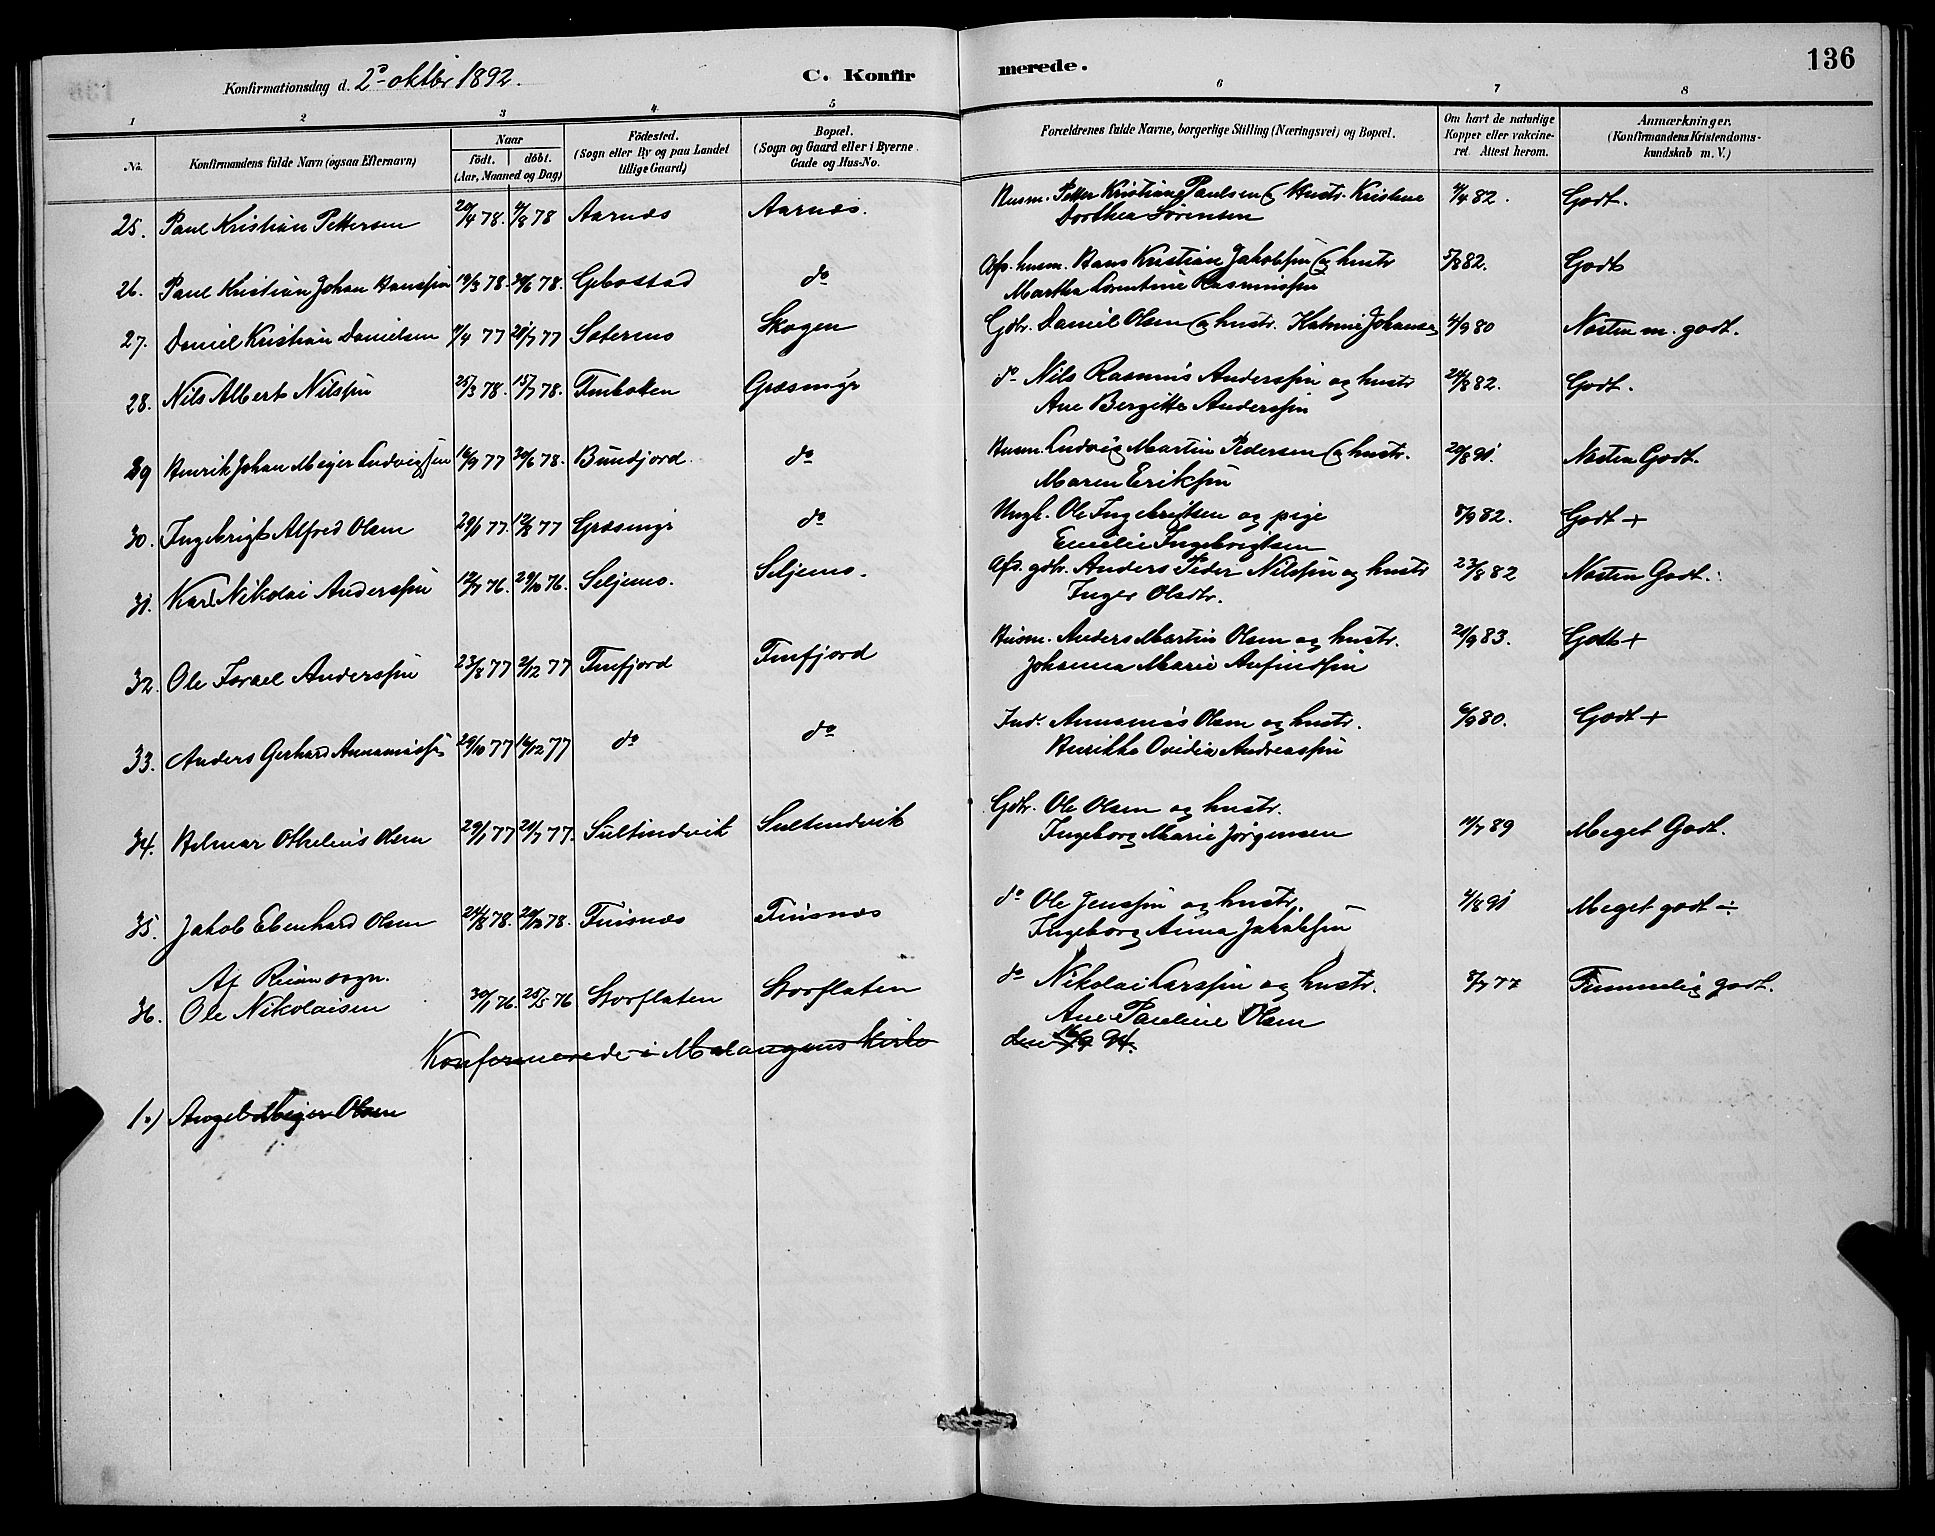 136
Konfirmationsdag d. 2 oktbr 1892. C. Konfirmerede.
1 2 3 4 5 6 7 8
No. Konfirmandens fulde Navn (ogsaa Efternavn) Naar födt. döbt. (Aar, Maaned og Dag) Födested. (Sogn eller By og paa Landet tillige Gaard) Bopæl. (Sogn og Gaard eller i Byerne Gade og Hus-No. Forældrenes fulde Navne, borgerlige Stilling (Næringsvei) og Bopæl. Om havt de naturlige Kopper eller vakcineret. Attest herom. Anmærkninger. (Konfirmandens Kristendomskundskab m. V.)
25. Paul Kristian Pettersen 20/4 78. 78 Aarnæs Aarnæs. Husm. Petter Kristian Paulsen og Hustr. Kristine Dorthea Sørensen 82. Godt.
26. Paul Kristian Johan Hanssen 19/3 78. 30/6 78. Gebostad do Afs. husm. Hans Kristian Jakobsen og hustr Martha Lorentine Rasmussen 5/8 82. Godt
27. Daniel Kristian Danielsen 77 77 Skogen Gdbr. Daniel Olsen og hustr. 4/9 80 Næsten m. godt.
28. Nils Albert Nilssen 25/3 78. 15/7 78. Finbotten Græsmyr do Nils Rasmus Anderssen og hustr Ane Bergitte Anderssen 24/8 82. Godt.
29 Henrik Johan Meyer Ludvigsen 16/9 77 30/6 78. Bundjord do Husm. Ludvig Martin Pedersen og hustr. Maren Eriksen 20/8 91. Næsten Godt.
30. Ingebrigt Alfred Olsen 77. 77 Græsmyr do Ungk. Ole Ingebrigtsen og pige Emilie Ingebrigtsen 8/9 82. Godt +
31. Karl Nikolai Anderssen 76. 29/10 76. Seljemo. Seljemo. Afs. gdbr. Anders Peder Nilssen og hustr Inger Olsdtr. 23/8 82 Næsten Godt.
32. Ole Israel Anderssen 23/8 77 2/12 77 Finfjord Finfjord Husm. Anders Martin Olsen og hustr. Johanna Marie Anfindsen 83. Godt +
33. Anders Gerhard Annaniassen 29/10 77 16/12 77 do do Ind. Annanias Olsen og hustr. Henrikke Ovidia Andreassen 6/9 80. Godt +
34. Helmer Othelius Olsen 29/1 77 77. Sultindvik Sultindvik Gdbr. Ole Olsen og hustr. Ingeborg Marie Jørgensen 89 Meget Godt.
35. Jakob Ebenhard Olsen 24/8 78. 20/10 78. Finsnæs Finsnæs do Ole Jenssen og hustr. Ingeborg Anna Jakobsen 4/8 91 Meget godt ÷
Af Reiens sogn.
36. Ole Nikolaisen 76. 76 Storflaten Storflaten do Nikolai Larssen og hustr. Ane Pauline Olsen 8/7 77 Temmelig godt.
Konfirmerede i Malangens kirke den 16/9 94.
1.) Angel Meyer Olsen